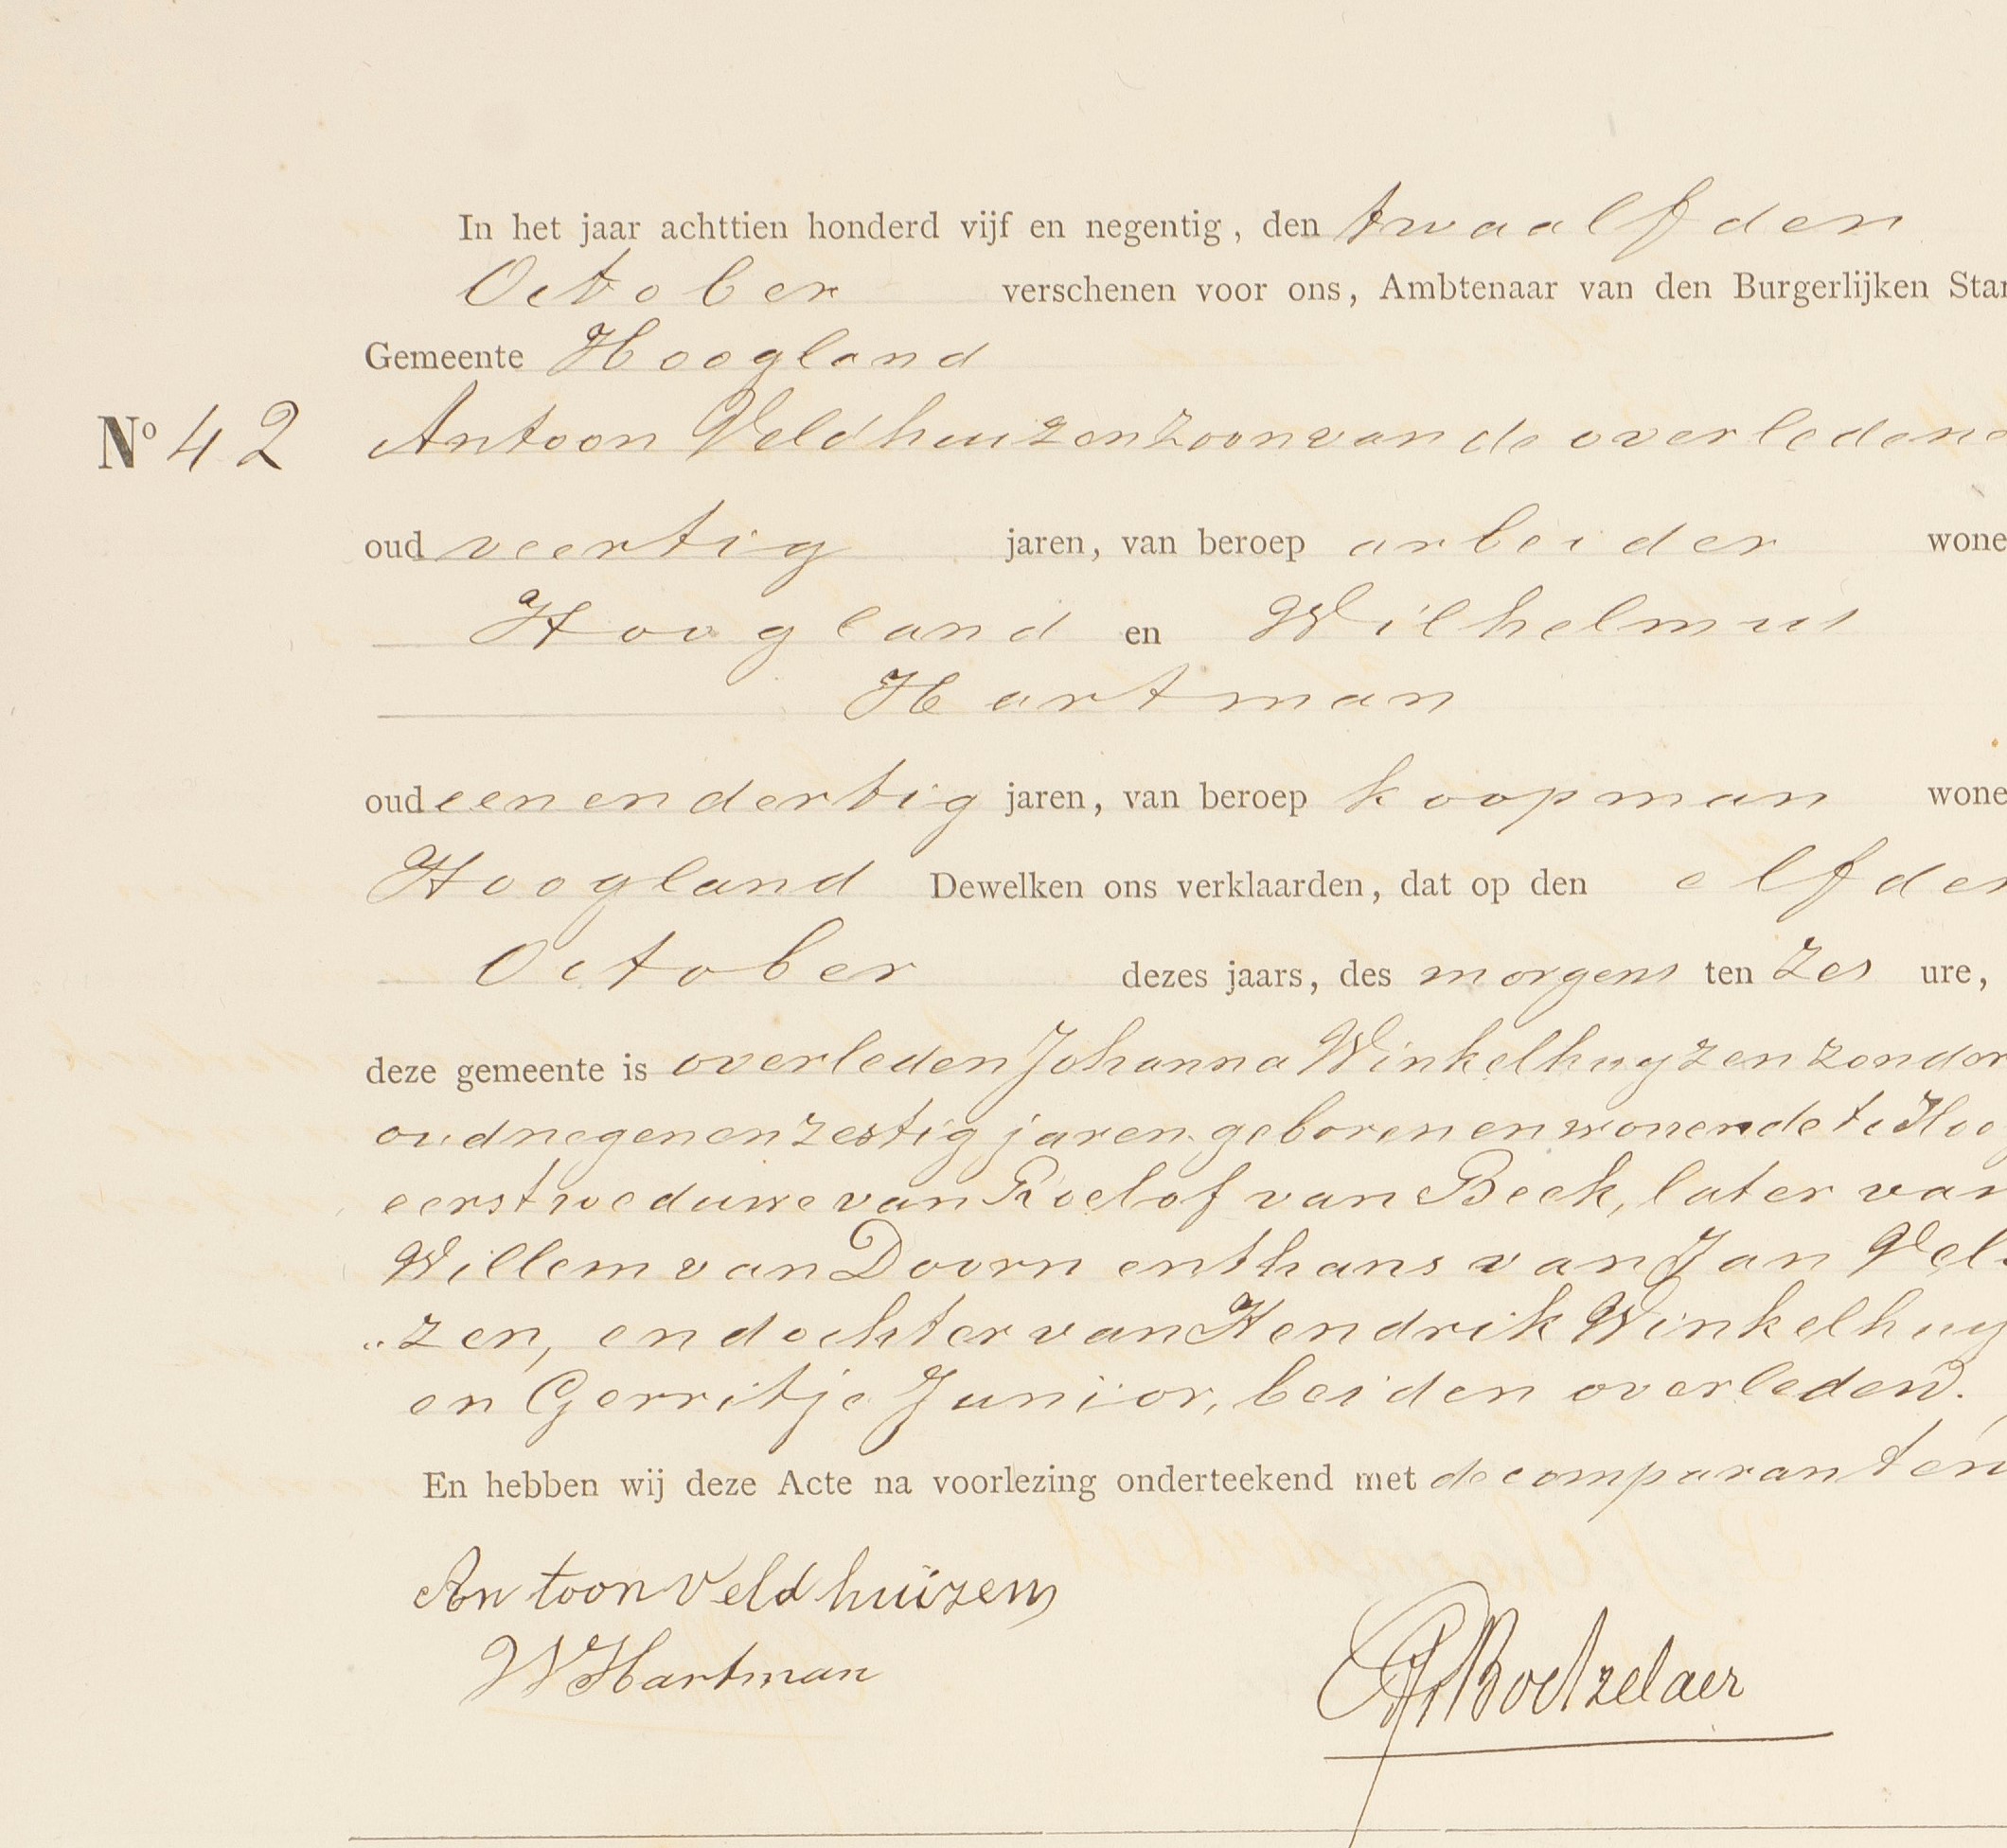 In het jaar achttien honderd vijf en negentig, den twaalfden
October verschenen voor ons, Ambtenaar van den Burgerlijken Stan
Gemeente Hoogland
No 42 Antoon Veldhuizen zoon van de overledene
oud veertig jaren, van beroep arbeider wone
Hoogland en Wilhelmus
Hartman
oud een en dertig jaren, van beroep koopman wone
Hoogland Dewelken ons verklaarden, dat op den elfden
October dezes jaars, des morgens ten zes ure,
deze gemeente is overleden Johanna Winkelhuyzen zonder
oud negen en zestig jaren geboren en wonende te Hoog
eerst weduwe van Roelof van Beek, later van
Willem van Doorn en thans van Jan Vel
„zen, en dochter van Hendrik Winkelhuy
en Gerritje Junior, beiden overleden.
En hebben wij deze Acte na voorlezing onderteekend met de comparanten
Antoon Veldhuizen
WHartman
Boetzelaer